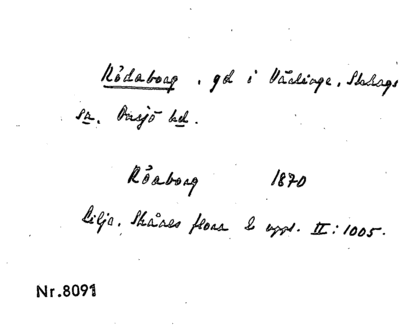 Rådaborg, gd i Väslinge, Stehags
sn, Onsjö hd.
Råaborg 1870
Lilja, Skånes flora 2 uppl. II:1005.
Nr.8091